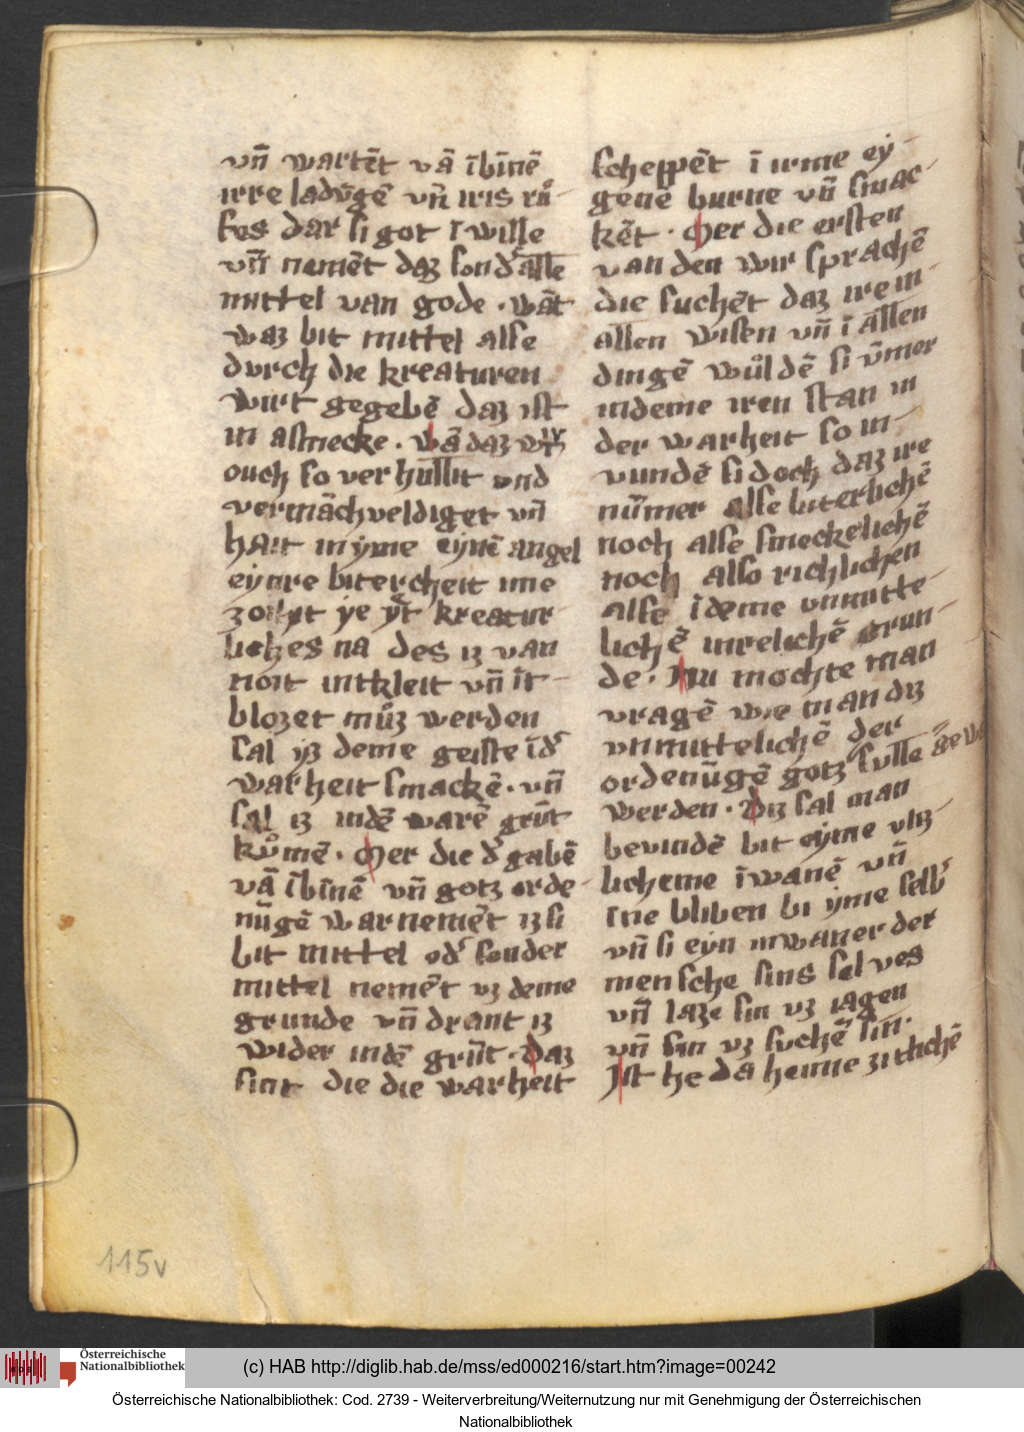 vn̄ wartēt vā ībīnē
irre ladūgē vn̄ iris rů
fes dar si got ī wille
vn̄ nemēt daz sond'alle
mittel van gode · wāt
waz bit mittel alse
durch die kreaturen
wirt gegebē daz ist
in asmecke · wā daz
ouch so verhullit vnd
vermāchveldiget vn̄
hait in ẏme eẏnē angel
eẏnre bitercheit ime
ẏe kreatur
liches na des iz van
noit intkleit vn̄ īt
blozet můz werden
sal iz deme geiste ī d'
warheit smackē · vn̄
sal iz indē warē grūt
kůmē · Mer die d' gabē
vā ībīnē vn̄ gotz orde
nūgē war nemēt iz si
bit mittel od' sonder
mittel nemēt vz deme
grunde vn̄ drant iz
wider indē grūt · Daz
sint die die warheit
scheppēt ī irme eẏ
genē burne vn̄ smac
kēt · Mer die ersten
van den wir sprachē
die suchēt daz ire in
allen wisen vn̄ ī allen
dingē wůldē si ūmer
indeme iren stan in
der warheit so in
vundē si doch daz ire
nūmer alse luterlichē
noch alse smeckelichē
noch also richlichen
alse ī deme vnmitte
lichē inrelichē grun
de · Nu mochte man
vragē wie man diz
vnmittelichē der
ordenūgē gotz sulle gewar
werden · Diz sal man
bevindē bit eẏme vliz
licheme īwanē vn̄
īne bliben bi ẏme selb'
vn̄ si eẏn inwaner der
mensche sins selves
vn̄ laze sin vz iagen
vn̄ sin vz suchē sin ·
Ist he da heime zitlichē
115v
Österreichische
Nationalbibliothek
(c) HAB http://diglib.hab.de/mss/ed000216/start.htm?image=00242
Österreichische Nationalbibliothek: Cod. 2739 - Weiterverbreitung/Weiternutzung nur mit Genehmigung der Österreichischen
Nationalbibliothek